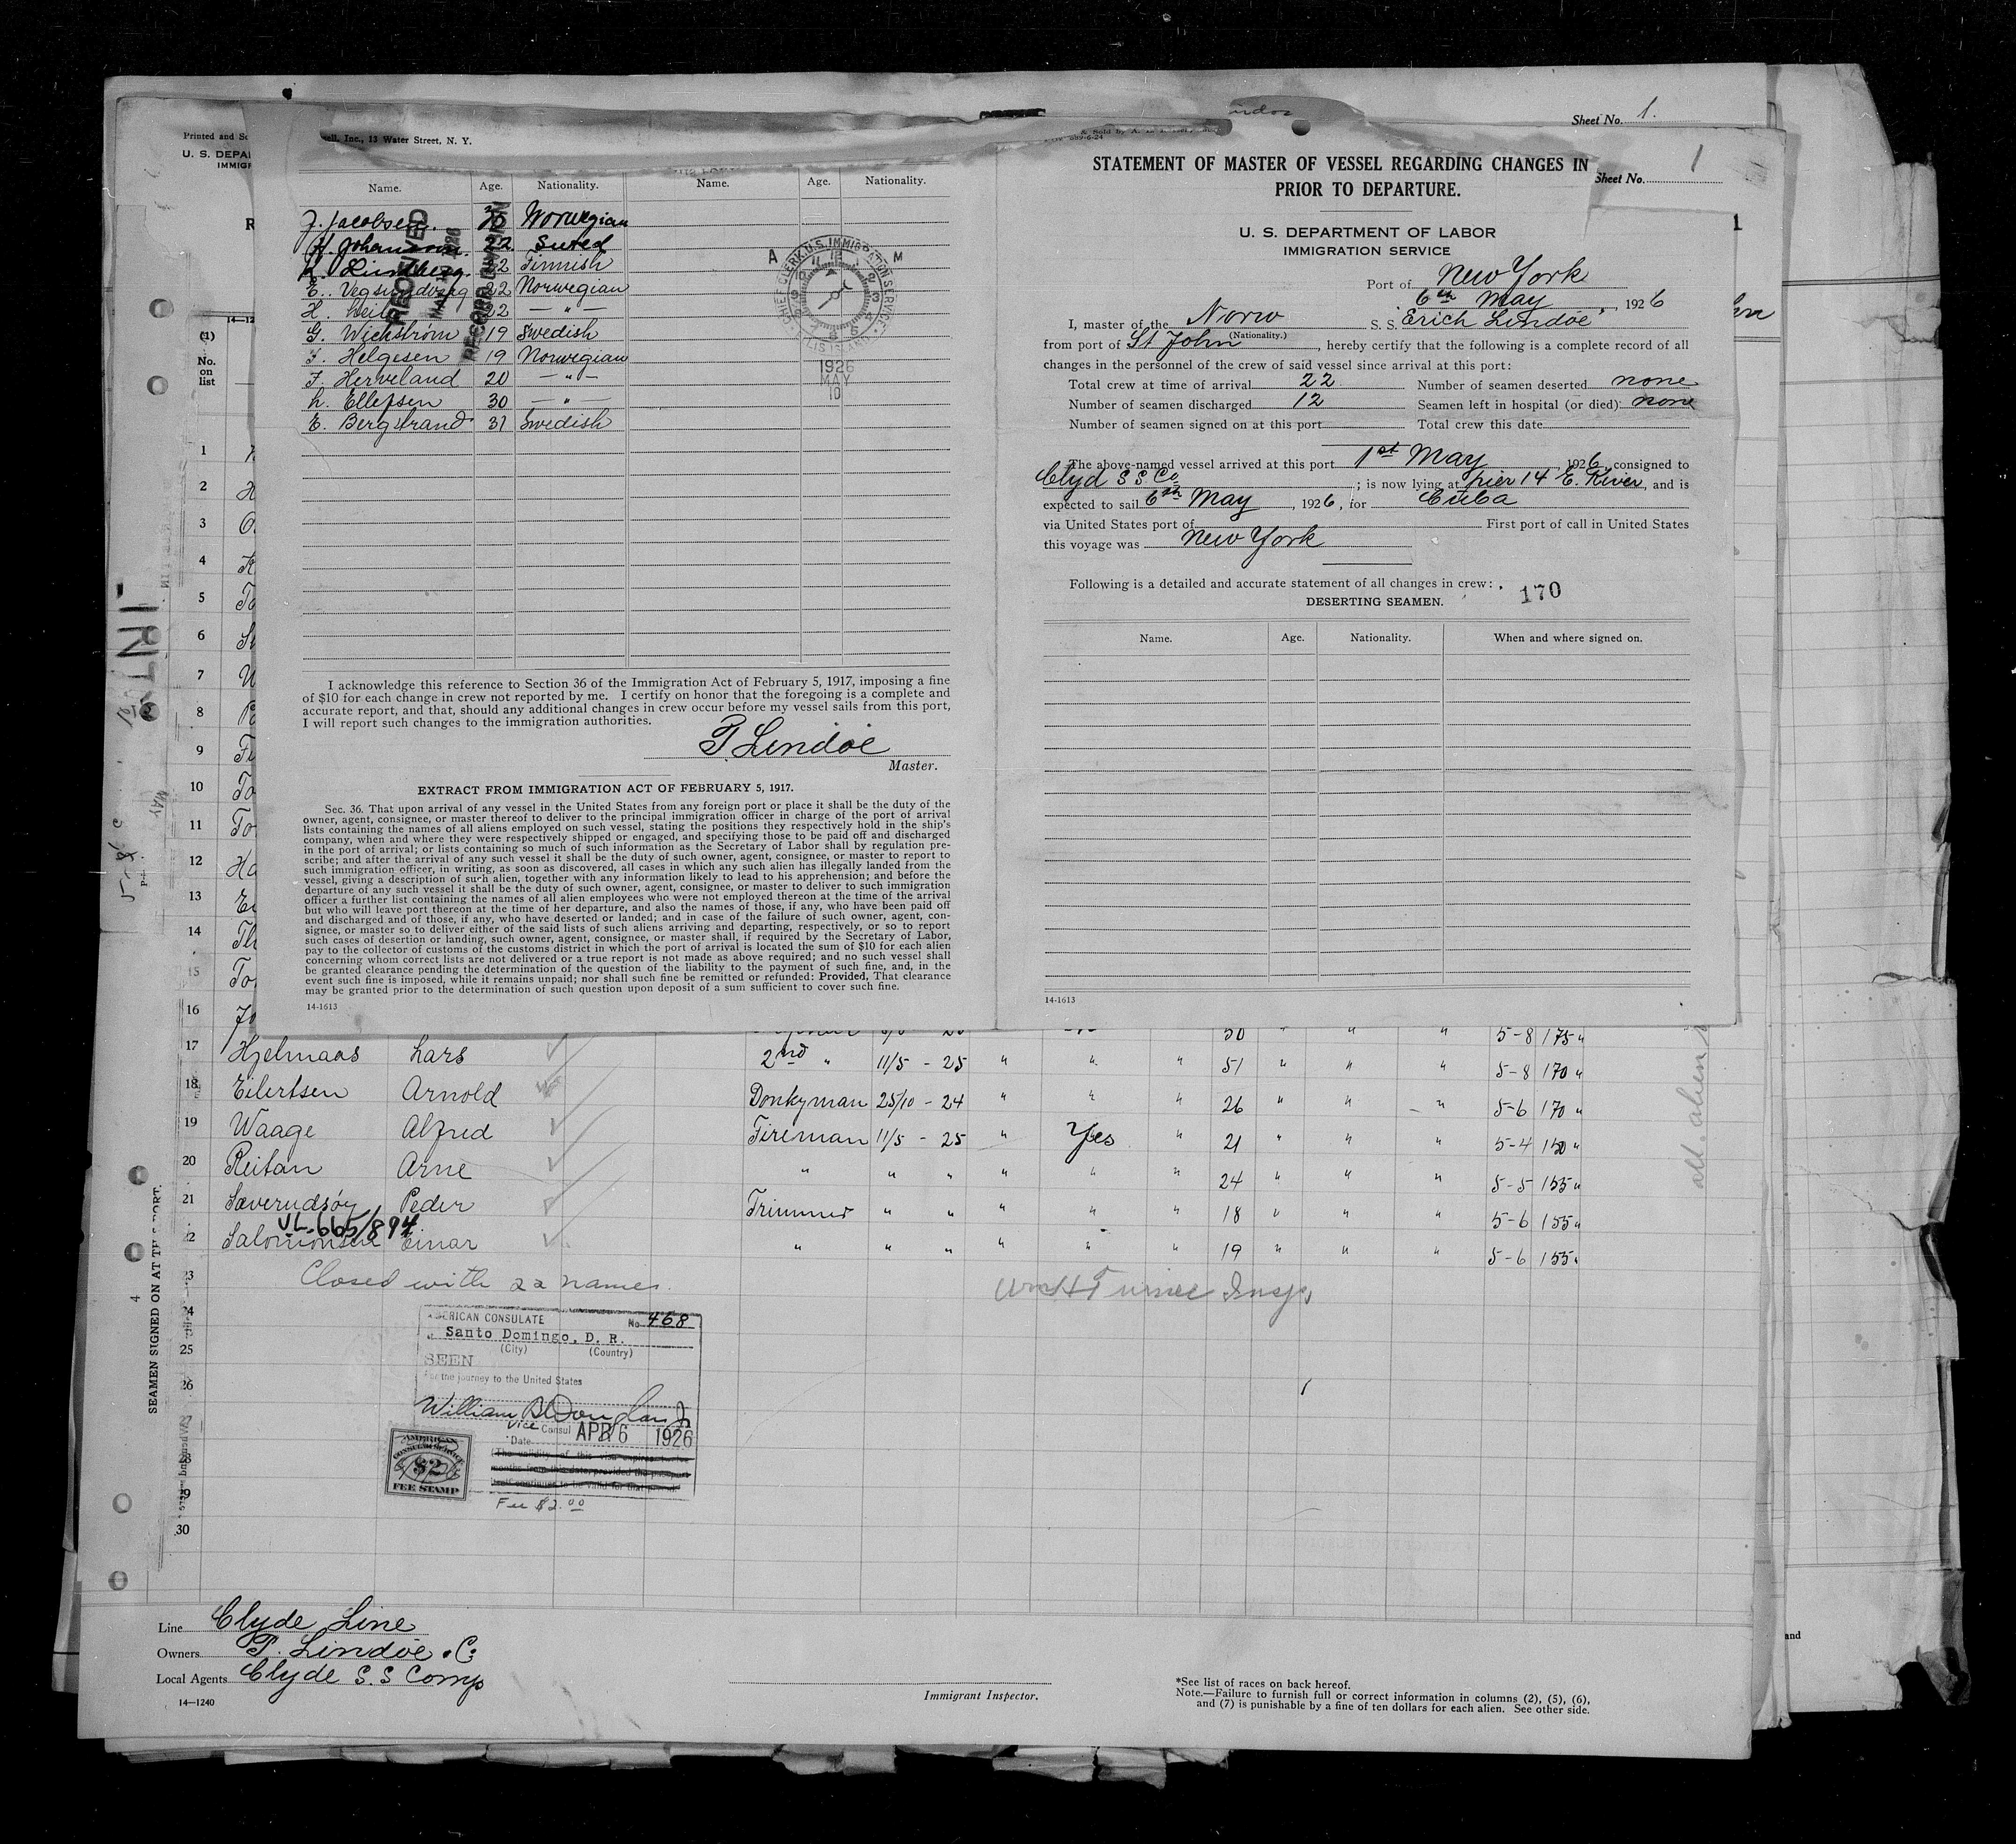 Sheet No. 1.
Printed and So
ell, Inc., 13 Water Street, N. Y.
U. S. DEPA
IMMIGR
Name. Age. Nationality. Name. Age. Nationality.
J. Jacobsen. 30 Norwegian
H. Johansson. 22 Swed
L. Lindberg. 32 Finnish
E. Vegsundvaag 22 Norwegian
22 — " —
G. Wickström 19 Swedish
J. Helgesen 19 Norwegian
J. Herveland 20 — " —
L. Ellefsen 30 — " —
E. Bergstrand 31 Swedish
RECEIVED
RECORD DIVISION
CHIEF CLERK U.S. IMMIGRATION SERVICE
A M
1926
MAY
10
I acknowledge this reference to Section 36 of the Immigration Act of February 5, 1917, imposing a fine
of $10 for each change in crew not reported by me. I certify on honor that the foregoing is a complete and
accurate report, and that, should any additional changes in crew occur before my vessel sails from this port,
I will report such changes to the immigration authorities.
T. Lindöe
Master.
EXTRACT FROM IMMIGRATION ACT OF FEBRUARY 5, 1917.
Sec. 36. That upon arrival of any vessel in the United States from any foreign port or place it shall be the duty of the
owner, agent, consignee, or master thereof to deliver to the principal immigration officer in charge of the port of arrival
lists containing the names of all aliens employed on such vessel, stating the positions they respectively hold in the ship's
company, when and where they were respectively shipped or engaged, and specifying those to be paid off and discharged
in the port of arrival; or lists containing so much of such information as the Secretary of Labor shall by regulation pre-
scribe; and after the arrival of any such vessel it shall be the duty of such owner, agent, consignee, or master to report to
such immigration officer, in writing, as soon as discovered, all cases in which any such alien has illegally landed from the
vessel, giving a description of such alien, together with any information likely to lead to his apprehension; and before the
departure of any such vessel it shall be the duty of such owner, agent, consignee, or master to deliver to such immigration
officer a further list containing the names of all alien employees who were not employed thereon at the time of the arrival
but who will leave port thereon at the time of her departure, and also the names of those, if any, who have been paid off
and discharged and of those, if any, who have deserted or landed; and in case of the failure of such owner, agent, con-
signee, or master so to deliver either of the said lists of such aliens arriving and departing, respectively, or so to report
such cases of desertion or landing, such owner, agent, consignee, or master shall, if required by the Secretary of Labor,
pay to the collector of customs of the customs district in which the port of arrival is located the sum of $10 for each alien
concerning whom correct lists are not delivered or a true report is not made as above required; and no such vessel shall
be granted clearance pending the determination of the question of the liability to the payment of such fine, and, in the
event such fine is imposed, while it remains unpaid; nor shall such fine be remitted or refunded: Provided, That clearance
may be granted prior to the determination of such question upon deposit of a sum sufficient to cover such fine.
14-1613
STATEMENT OF MASTER OF VESSEL REGARDING CHANGES IN
PRIOR TO DEPARTURE.
Sheet No. 1
U. S. DEPARTMENT OF LABOR
IMMIGRATION SERVICE
Port of New York
6th May, 1926
I, master of the Norw S. S. "Erich Lindöe"
(Nationality.)
from port of St John, hereby certify that the following is a complete record of all
changes in the personnel of the crew of said vessel since arrival at this port:
Total crew at time of arrival 22 Number of seamen deserted none
Number of seamen discharged 12 Seamen left in hospital (or died) none
Number of seamen signed on at this port Total crew this date
The above-named vessel arrived at this port 1st May, 1926, consigned to
Clyd S S Co; is now lying at pier 14 E. River, and is
expected to sail 6th May, 1926, for Cuba
via United States port of First port of call in United States
this voyage was New York
Following is a detailed and accurate statement of all changes in crew:
170
DESERTING SEAMEN.
Name. Age. Nationality. When and where signed on.
14-1613
(1)
No.
on
list
1
2
3
4
5
6
7
8
9
10
11
12
13
14
15
16
30 " " " 5-8 175 "
17 Hjelmaas Lars 2nd " 11/5 - 25 " " " 51 " " " 5-8 170 "
18 Eilertsen Arnold Donkyman 25/10 - 24 " " " 26 " " " 5-6 170 "
19 Waage Alfred Fireman 11/5 - 25 " Yes " 21 " " " 5-4 150 "
20 Reitan Arne " " " " " " 24 " " " 5-5 155 "
21 Sæverudsöy Peder Trimmer " " " " " 18 " " " 5-6 155 "
VL-665/894
22 Salomonsen Einar " " " " " " 19 " " " 5-6 155 "
23 Closed with 22 names.
24
25
26
27
28
29
30
AMERICAN CONSULATE No. 468
at Santo Domingo, D. R.
(City) (Country)
SEEN
For the journey to the United States
William B Douglas Jr
Vice Consul
Date APR 6 1926
AMERICAN
CONSULAR SERVICE
$2
FEE STAMP
Fee $2.00
SEAMEN SIGNED ON AT THIS PORT.
Line Clyde Line
Owners T. Lindöe & Co
Local Agents Clyde S. S Comp
14—1240
Immigrant Inspector.
*See list of races on back hereof.
Note.—Failure to furnish full or correct information in columns (2), (5), (6),
and (7) is punishable by a fine of ten dollars for each alien. See other side.
and